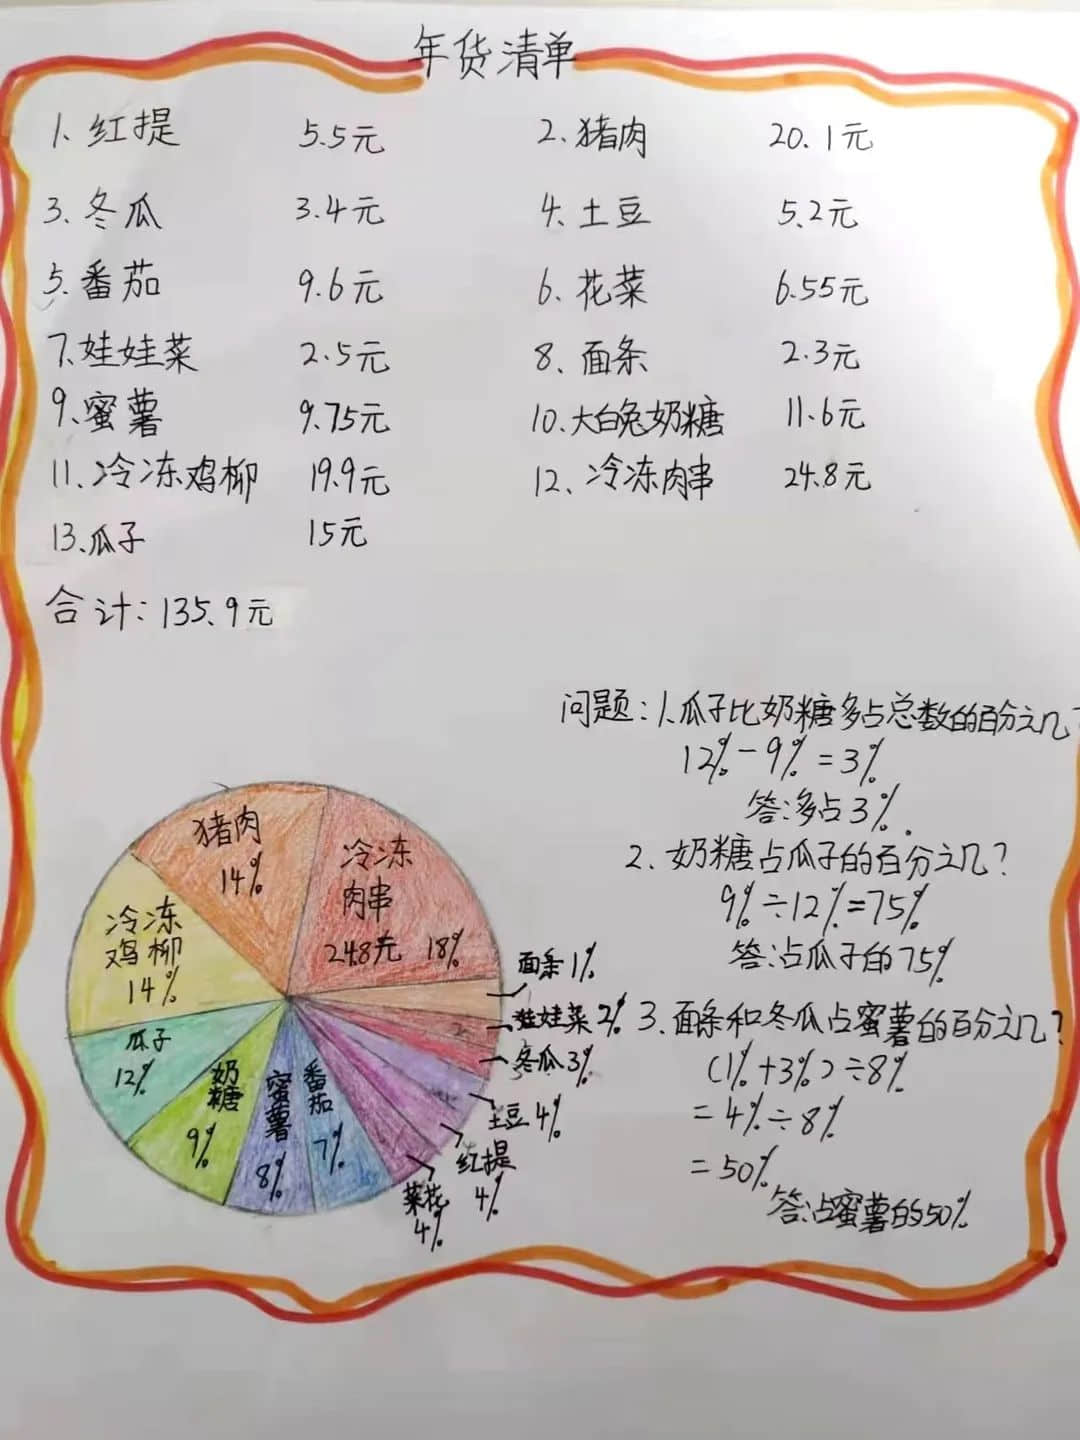 年货清单
1. 红提 5.5元 2. 猪肉 20.1元
3. 冬瓜 3.4元 4. 土豆 5.2元
5. 番茄 9.6元 6. 花菜 6.55元
7. 娃娃菜 2.5元 8. 面条 2.3元
9. 蜜薯 9.75元 10. 大白兔奶糖 11.6元
11. 冷冻鸡柳 19.9元 12. 冷冻肉串 24.8元
13. 瓜子 15元
合计: 135.9元
问题: 1. 瓜子比奶糖多占总数的百分之几?
12% - 9% = 3%
答: 多占3%.
2. 奶糖占瓜子的百分之几?
9% ÷ 12% = 75%
答: 占瓜子的75%
3. 面条和冬瓜占蜜薯的百分之几?
(1% + 3%) ÷ 8%
= 4% ÷ 8%
= 50%
答: 占蜜薯的50%
猪肉
14%
冷冻
肉串
24.8元 18%
冷冻
鸡柳
14%
瓜子
12%
奶糖
9%
蜜薯
8%
番茄
7%
面条 1%
娃娃菜 2%
冬瓜 3%
土豆 4%
红提
4%
菜花
4%